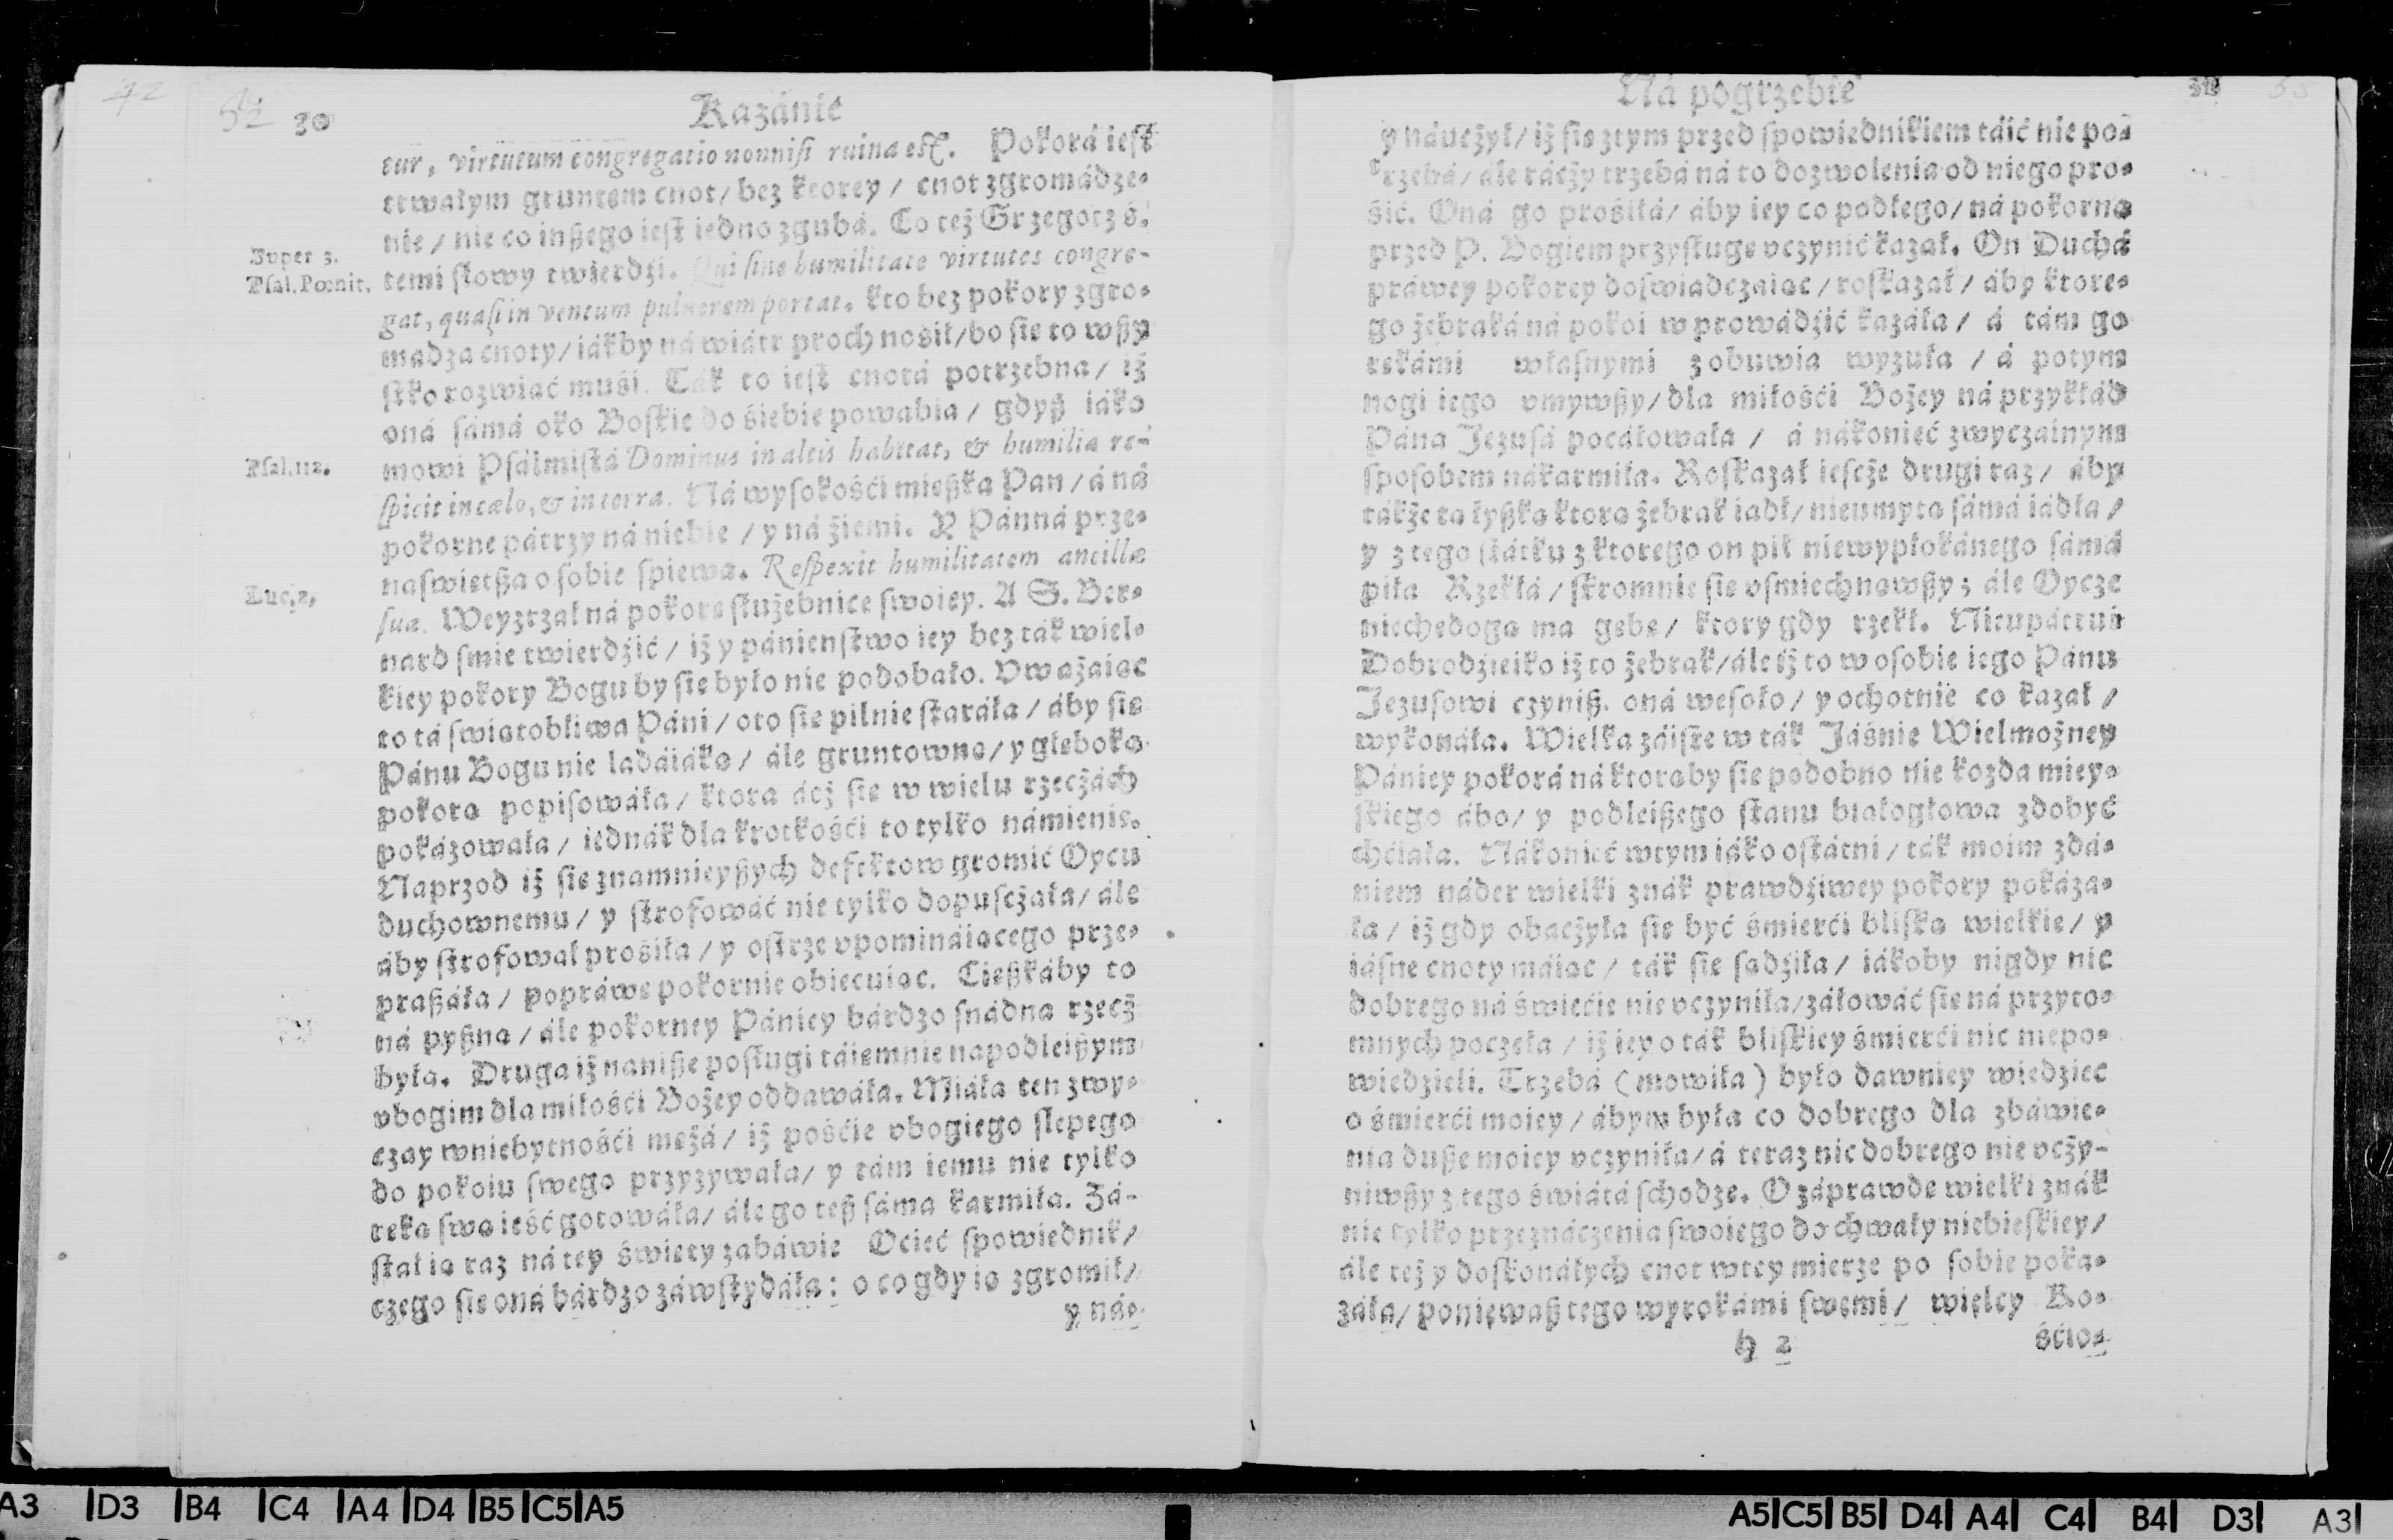 42
52 30
Kazánie
tur, virtutum congregatio nonnisi ruina est. Pokorá iest
trwałym gruntem cnot/ bez ktorey / cnot zgromádze-
nie / nie co inßego iest iedno zgubá. Co też Grzegorz ś.
Super 3.
Psal. Pœnit.
temi słowy twierdźi. Qui sine humilitate virtutes congre-
gat, quasi in ventum puluerem portat. kto bez pokory zgro-
madza cnoty/ iákby ná wiátr proch nośił/ bo się to wßy
stko rozwiać muśi. Ták to iest cnotá potrzebna/ iż
oná sámá oko Boskie do śiebie powabia / gdyß iáko
Psal. 112.
mowi Psálmistá Dominus in altis habitat, & humilia re-
spicit in cælo, & in terra. Ná wysokośći mießka Pan / á ná
pokorne pátrzy ná niebie / y ná źiemi. Y Pánná prze-
naswiętßa o sobie spiewa. Respexit humilitatem ancillæ
Luc. 2.
suæ. Weyzrzał ná pokorę służebnice swoiey. A S. Ber-
nard smie twierdźić / iż y pánienstwo iey bez ták wiel-
kiey pokory Bogu by się było nie podobało. Uważaiąc
to tá swiątobliwa Páni / oto się pilnie stáráła / áby się
Pánu Bogu nie ladáiáką / ále gruntowną / y głęboką
pokorą popisowáła / ktora ácż się w wielu rzecżách
pokázowała / iednák dla krotkośći to tylko námienię.
Naprzod iż się znamnieyßych defektow gromić Oycu
duchownemu / y strofowáć nie tylko dopuscżała/ ále
áby strofował prośiła / y ostrze vpominaiącego prze-
praßáła / popráwę pokornie obiecuiąc. Cięßkáby to
ná pyßną / ále pokorney Pániey bárdzo snádna rzecż
była. Druga iż naniße posługi táiemnie napodleißym
vbogim dla miłośći Bożey oddawáła. Miáła ten zwy-
czay w niebytnośći mężá / iż pośćie vbogiego slepego
do pokoiu swego przyzywała/ y tám iemu nie tylko
ręką swą ieść gotowáła/ ále go też sáma karmiła. Zá-
stał ią raz ná tey świętey zabáwie Ociec spowiednik/
czego się oná bárdzo záwstydáła: o co gdy ią zgromił/
y ná-
Ná pogrzebie
y náucżył/ iż się z tym przed spowiednikiem táić nie po-
trzebá/ ále rácży trzebá ná to dozwolenia od niego pro-
śić. Oná go prośiłá/ áby iey co podłego/ ná pokorną
przed P. Bogiem przysługę vczynić kazał. On Duchá
práwey pokorey doswiadczaiąc / roskazał / áby ktore-
go żebraká ná pokoi wprowádźić kazáła / á tám go
rękámi własnymi z obuwia wyzuła / á potym
nogi iego vmywßy/ dla miłośći Bożey ná przykłád
Pána Jezusá pocáłowała / á nákoniec zwyczáinym
sposobem nákarmiła. Roskazał iescże drugi raz / áby
tákże tą łyßką ktorą żebrak iadł/ nieumytą sámá iádła /
y z tego státku z ktorego on pił niewypłokánego sámá
piła Rzekłá / skromnie się vsmiechnąwßy; ále Oycze
niechędogą ma gębę / ktory gdy rzekł. Nieupátruú
Dobrodźieiko iż to żebrak/ ále iż to w osobie iego Pánu
Jezusowi czyniß. oná wesoło / y ochotnie co kazał /
wykonáła. Wielka záiste w ták Jáśnie Wielmożney
Pániey pokorá ná ktorąby się podobno nie kożda miey-
skiego ábo/ y podleißego stanu białogłowa zdobyć
chćiała. Nákoniec w tym iáko ostátni / ták moim zdá-
niem náder wielki znák prawdźiwey pokory pokáza-
ła / iż gdy obacżyła się być śmierći bliską wielkie / y
iásne cnoty máiąc / ták się sądźiła / iákoby nigdy nic
dobrego ná świećie nie vczyniła/ záłowáć się ná przyto-
mnych poczęła / iż iey o ták bliskiey śmierći nic niepo-
wiedzieli. Trzebá (mowiła) było dawniey wiedziec
o śmierći moiey / ábym była co dobrego dla zbáwie-
nia duße moiey vczyniła/ á teraz nic dobrego nie vcży-
niwßy z tego świátá schodzę. O záprawdę wielki znák
nie tylko przeznáczenia swoiego do chwały niebieskiey/
ále też y doskonáłych cnot w tey mierze po sobie poka-
záła/ poniewaß tego wyrokámi swęmi/ wielcy Ko-
H 2
śćio-
A3 D3 B4 C4 A4 D4 B5 C5 A5
A5 C5 B5 D4 A4 C4 B4 D3 A3